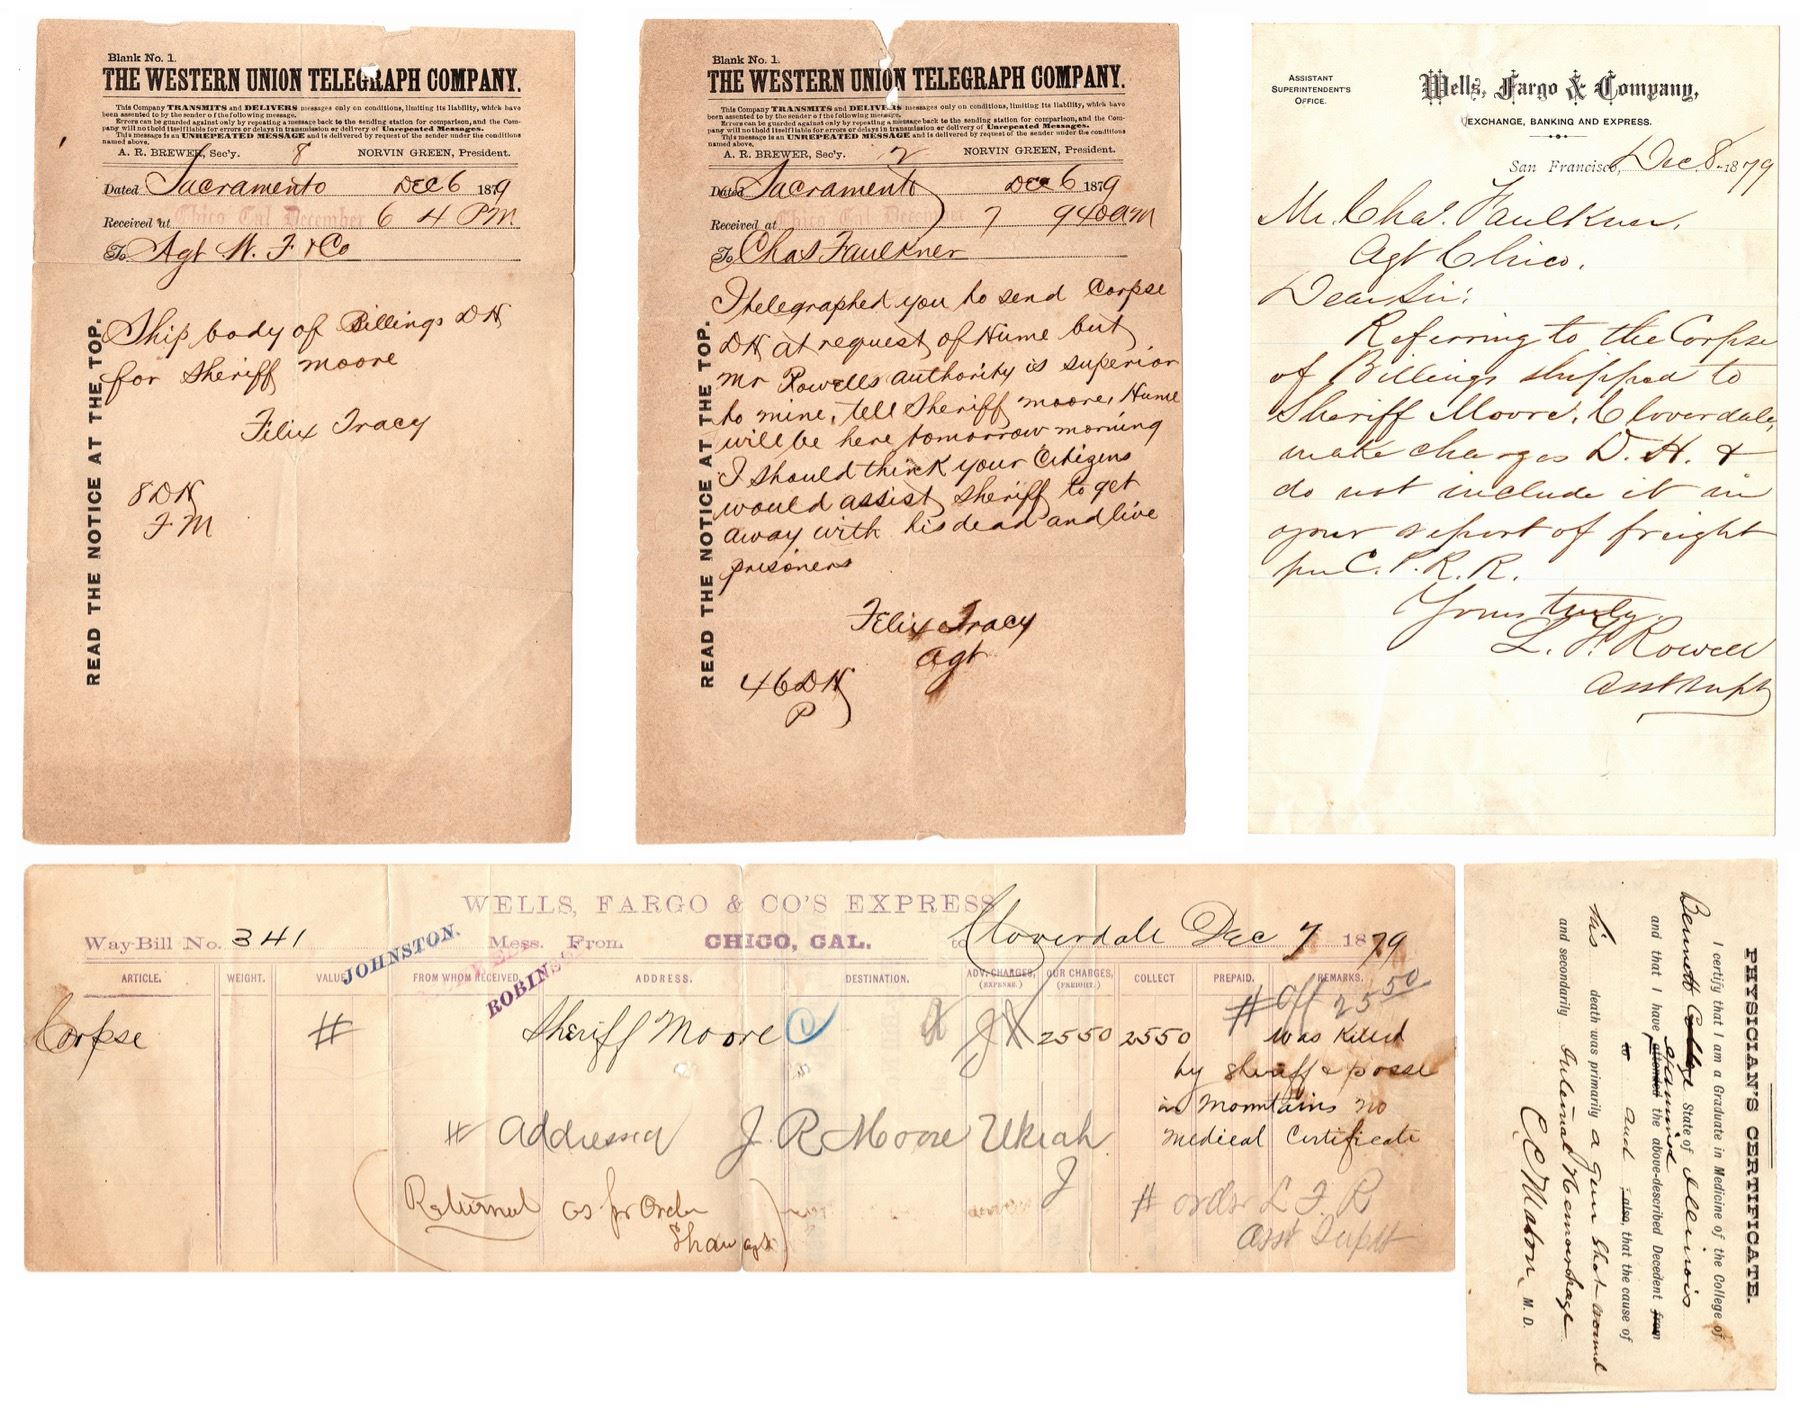 Blank No. 1.
THE WESTERN UNION TELEGRAPH COMPANY.
This Company TRANSMITS and DELIVERS messages only on conditions, limiting its liability, which have
been assented to by the sender of the following message.
Errors can be guarded against only by repeating a message back to the sending station for comparison, and the Com-
pany will not hold itself liable for errors or delays in transmission or delivery of Unrepeated Messages.
This message is an UNREPEATED MESSAGE and is delivered by request of the sender under the conditions
named above.
A. R. BREWER, Sec'y. 8 NORVIN GREEN, President.
Dated Sacramento DEC 6 1879
Received at Chico Cal December 6 4 PM
To Agt W. F & Co
READ THE NOTICE AT THE TOP.
Ship body of Billings DH
for Sheriff Moore
Felix Tracy
8 DH
F M
Blank No. 1.
THE WESTERN UNION TELEGRAPH COMPANY.
This Company TRANSMITS and DELIVERS messages only on conditions, limiting its liability, which have
been assented to by the sender of the following message.
Errors can be guarded against only by repeating a message back to the sending station for comparison, and the Com-
pany will not hold itself liable for errors or delays in transmission or delivery of Unrepeated Messages.
This message is an UNREPEATED MESSAGE and is delivered by request of the sender under the conditions
named above.
A. R. BREWER, Sec'y. 2 NORVIN GREEN, President.
Dated Sacramento DEC 6 1879
Received at Chico Cal December 7 940am
To Chas Faulkner
READ THE NOTICE AT THE TOP.
I telegraphed you to send Corpse
DH at request of Hume but
Mr Rowells authority is superior
to mine, tell Sheriff moore, Hume
will be here tomorrow morning
I should think your Citizens
would assist sheriff to get
away with his dead and live
prisoners
Felix Tracy
Agt
46 DH
P
ASSISTANT
SUPERINTENDENT'S
OFFICE.
Wells, Fargo & Company,
EXCHANGE, BANKING AND EXPRESS.
San Francisco, Dec. 8 1879
Mr. Chas. Faulkner,
Agt Chico.
Dear Sir:
Referring to the Corpse
of Billings shipped to
Sheriff Moore, Cloverdale,
make charges D. H. &
do not include it in
your report of freight
per C. P. R. R.
Yours truly,
L. F. Rowell
Asst Supt
WELLS, FARGO & CO'S EXPRESS
Way-Bill No. 341 JOHNSTON. Mess. From CHICO, CAL. to Cloverdale Dec 7 1879
ARTICLE. WEIGHT. VALUE FROM WHOM RECEIVED ADDRESS. DESTINATION. ADV. CHARGES, (EXPENSE.) OUR CHARGES, (FREIGHT.) COLLECT PREPAID. REMARKS.
# Off 25 50
Corpse # Sheriff Moore 2550 2550 was Killed
by sheriff & posse
in Mountains no
Medical Certificate
# Addressed J R Moore Ukiah
(Returned as pr Order
Shaw agt)
# order L F R
Asst Supt
PHYSICIAN'S CERTIFICATE.
I certify that I am a Graduate in Medicine of the College of
Bennett College State of Illinois
and that I have attended examined the above-described Decedent from
to and , also, that the cause of
his death was primarily a Gun Shot wound
and secondarily Internal Hemorrhage
C C Mason, M. D.